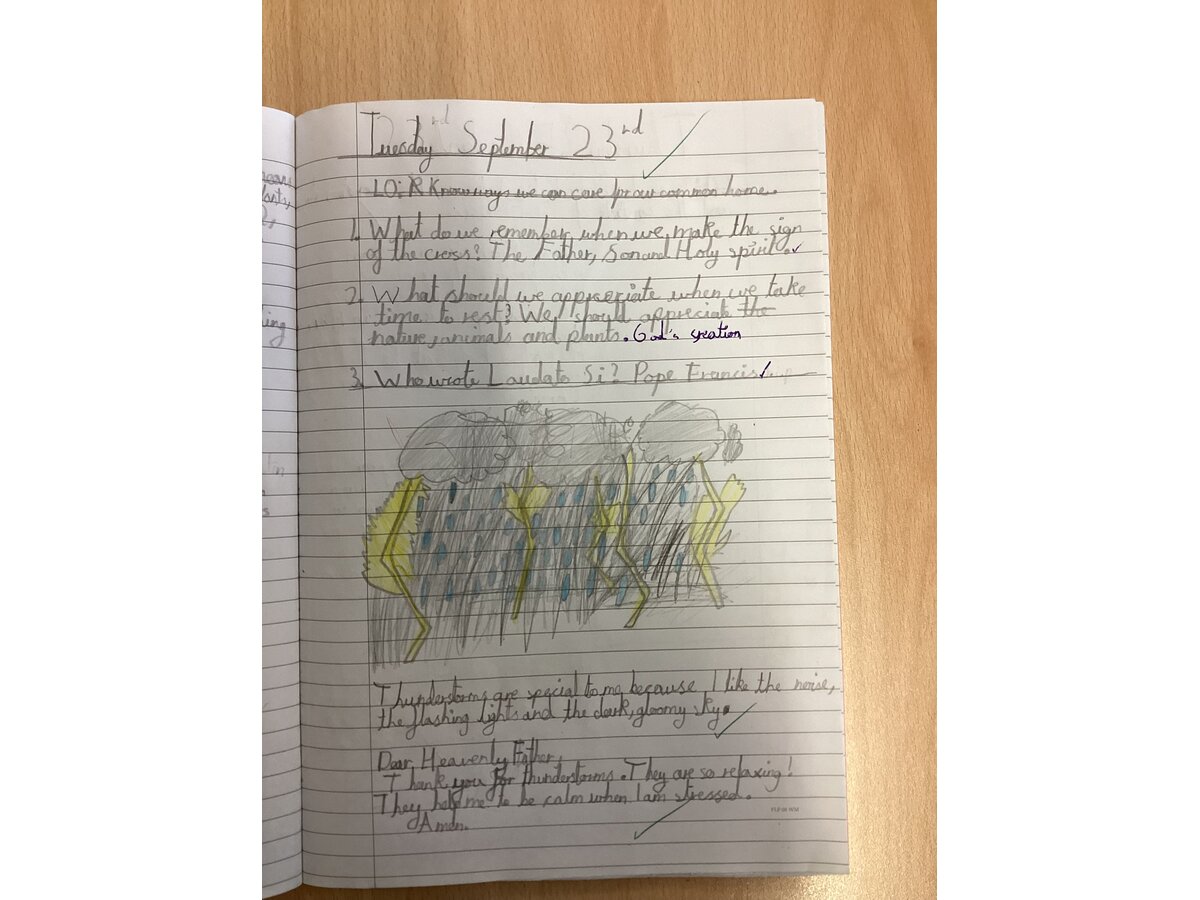 Tuesday September 23rd
LO: R Know ways we can care for our common home.
1. What do we remember when we make the sign
of the cross? The Father, Son and Holy spirit.
2. What should we appreciate when we take
time to rest? We should appreciate the
nature, animals and plants. God's creation
3. Who wrote Laudato Si? Pope Francis
Thunderstorms are special to me because I like the noise,
the flashing lights and the dark, gloomy sky.
Dear Heavenly Father,
Thank you for thunderstorms. They are so relaxing!
They help me to be calm when I am stressed.
Amen.